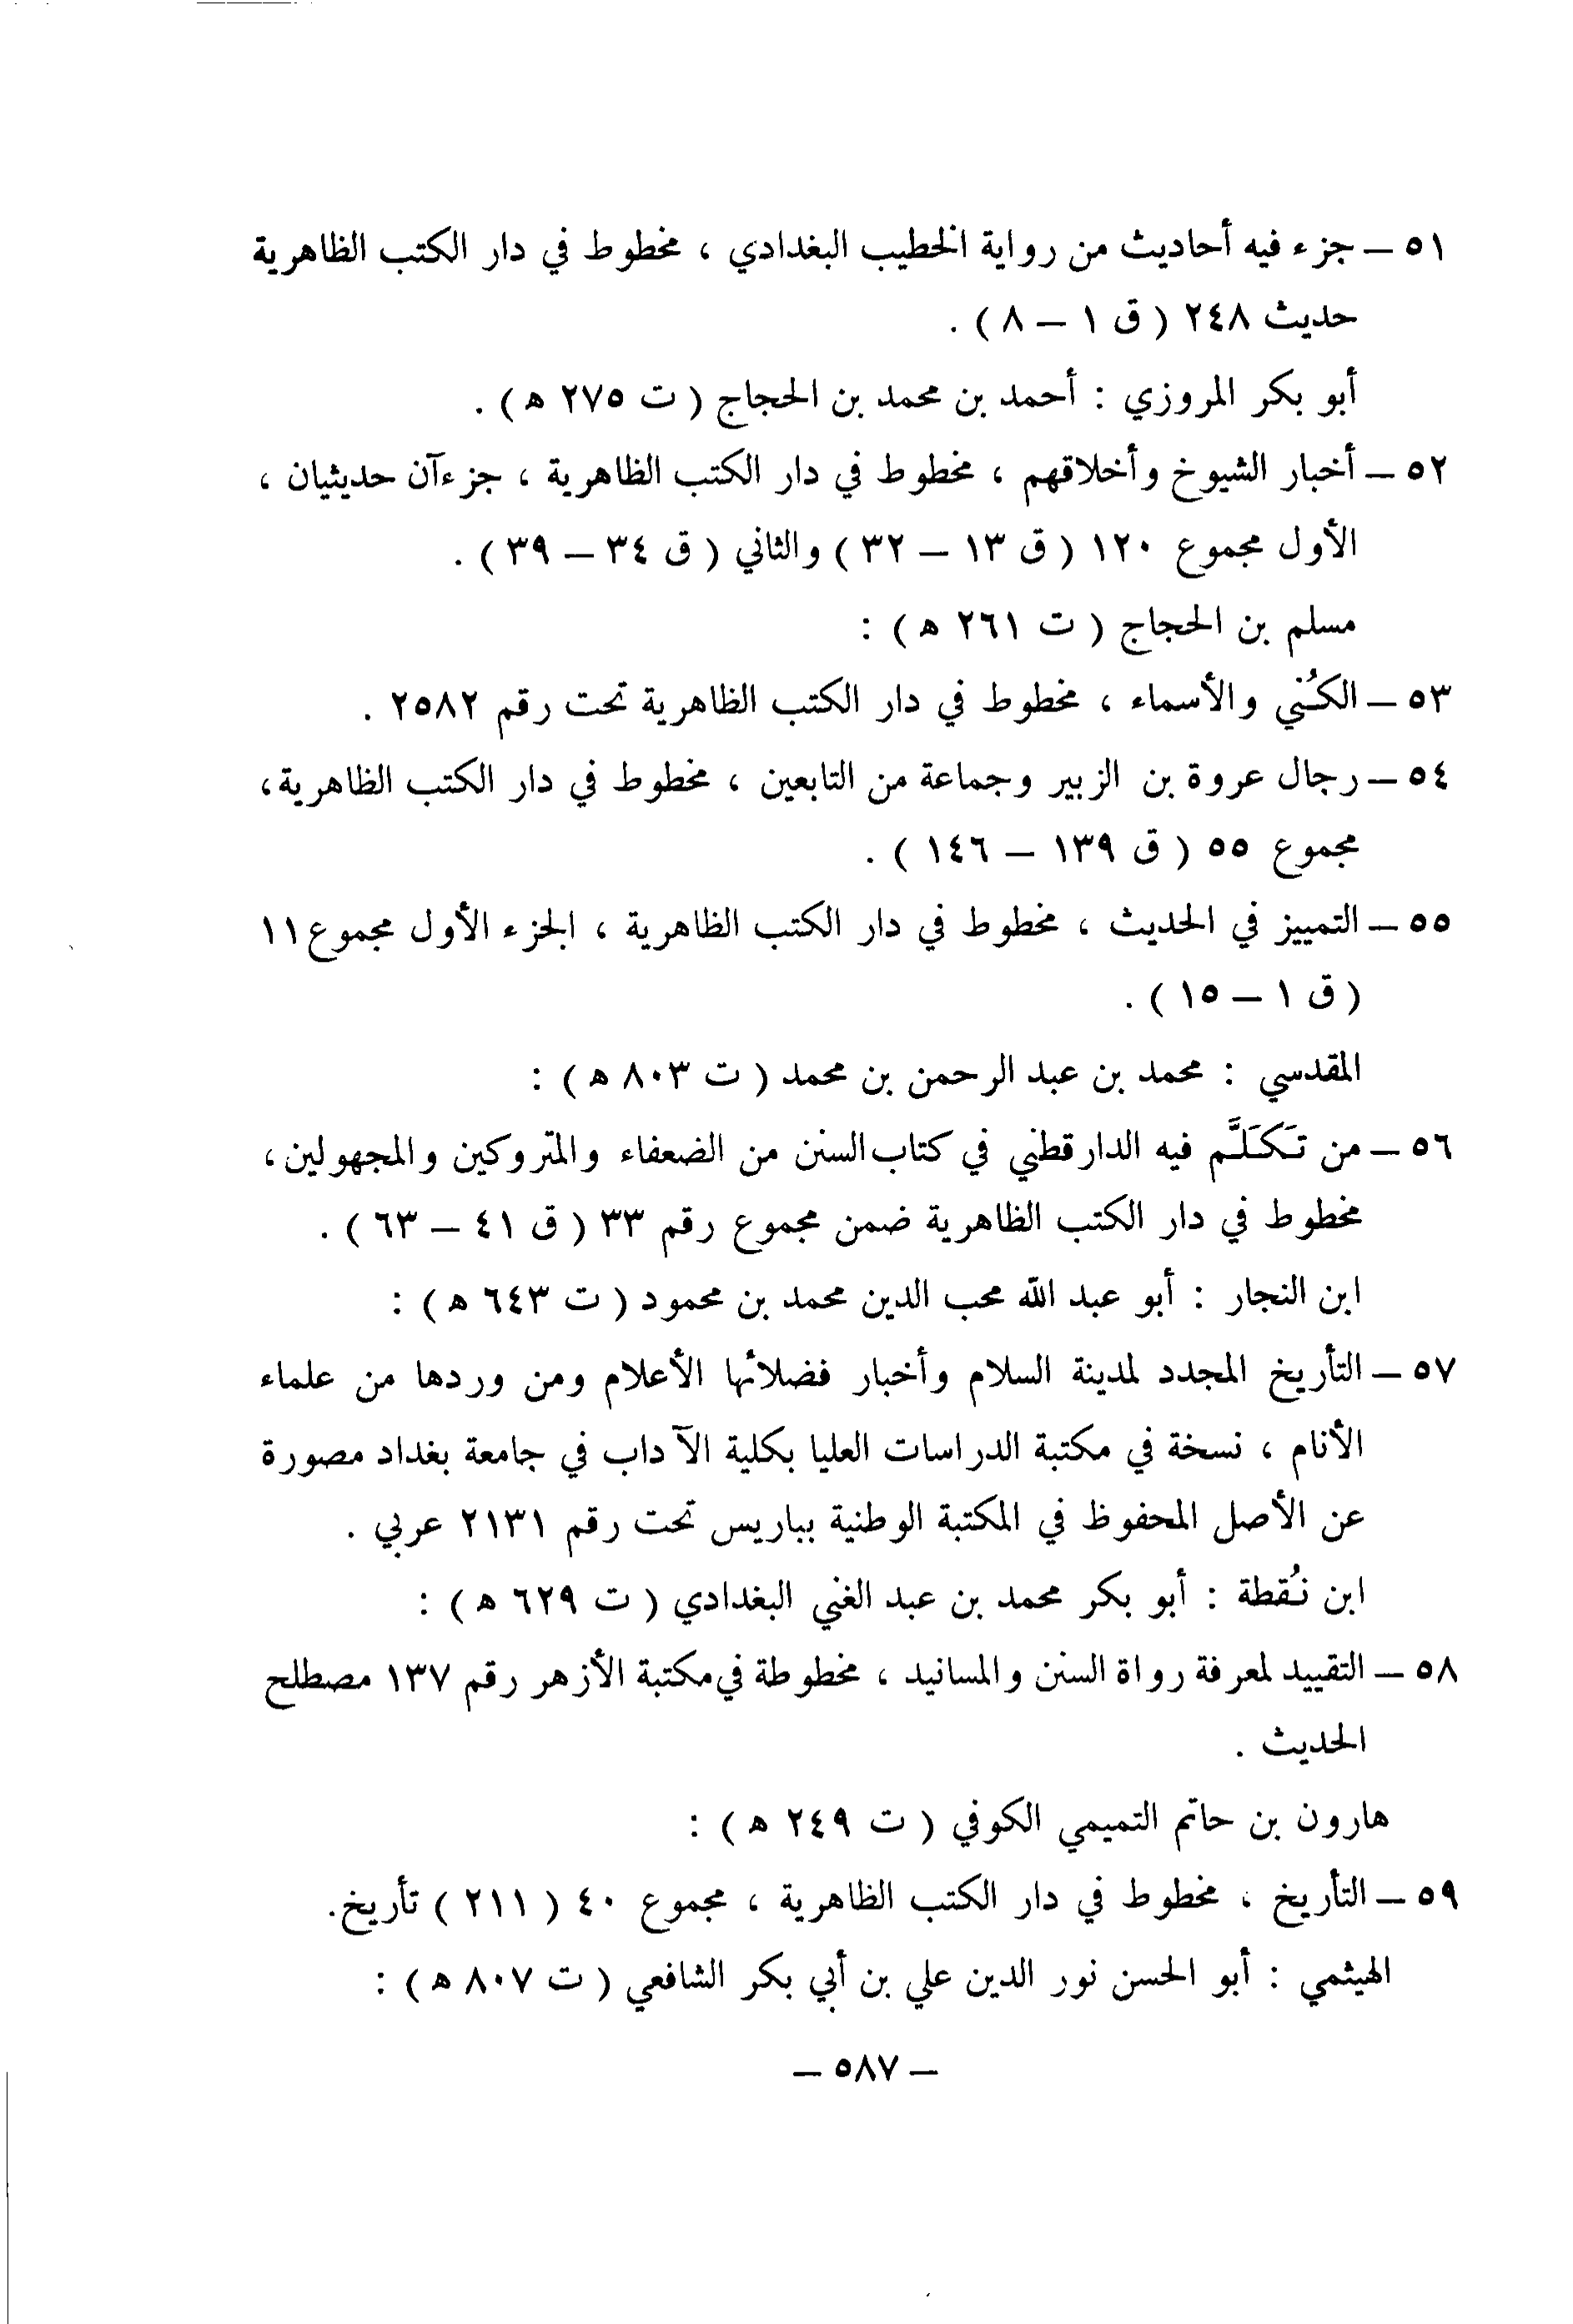 ٥١ – جزء فيه أحاديث من رواية الخطيب البغدادي ، مخطوط في دار الكتب الظاهرية
حديث ٢٤٨ ( ق ١ – ٨ ) .
أبو بكر المروزي : أحمد بن محمد بن الحجاج ( ت ٢٧٥ ه ) .
٥٢ – أخبار الشيوخ وأخلاقهم ، مخطوط في دار الكتب الظاهرية ، جزءآن حديثيان ،
الأول مجموع ١٢٠ ( ق ١٣ – ٣٢ ) والثاني ( ق ٣٤ – ٣٩ ) .
مسلم بن الحجاج ( ت ٢٦١ ه ) :
٥٣ – الكُنى والأسماء ، مخطوط في دار الكتب الظاهرية تحت رقم ٢٥٨٢ .
٥٤ – رجال عروة بن الزبير وجماعة من التابعين ، مخطوط في دار الكتب الظاهرية،
مجموع ٥٥ ( ق ١٣٩ – ١٤٦ ) .
٥٥ – التمييز في الحديث ، مخطوط في دار الكتب الظاهرية ، الجزء الأول مجموع ١١
( ق ١ – ١٥ ) .
المقدسي : محمد بن عبد الرحمن بن محمد ( ت ٨٠٣ ه ) :
٥٦ – من تَكَلَّم فيه الدارقطني في كتاب السنن من الضعفاء والمتروكين والمجهولين،
مخطوط في دار الكتب الظاهرية ضمن مجموع رقم ٣٣ ( ق ٤١ – ٦٣ ) .
ابن النجار : أبو عبد الله محب الدين محمد بن محمود ( ت ٦٤٣ ه ) :
٥٧ – التأريخ المجدد لمدينة السلام وأخبار فضلائها الأعلام ومن وردها من علماء
الأنام ، نسخة في مكتبة الدراسات العليا بكلية الآداب في جامعة بغداد مصورة
عن الأصل المحفوظ في المكتبة الوطنية بباريس تحت رقم ٢١٣١ عربي .
ابن نُقطة : أبو بكر محمد بن عبد الغني البغدادي ( ت ٦٢٩ ه ) :
٥٨ – التقييد لمعرفة رواة السنن والمسانيد ، مخطوطة في مكتبة الأزهر رقم ١٣٧ مصطلح
الحديث .
هارون بن حاتم التميمي الكوفي ( ت ٢٤٩ ه ) :
٥٩ – التأريخ ، مخطوط في دار الكتب الظاهرية ، مجموع ٤٠ ( ٢١١ ) تأريخ.
الهيثمي : أبو الحسن نور الدين علي بن أبي بكر الشافعي ( ت ٨٠٧ ه ) :
– ٥٨٧ –